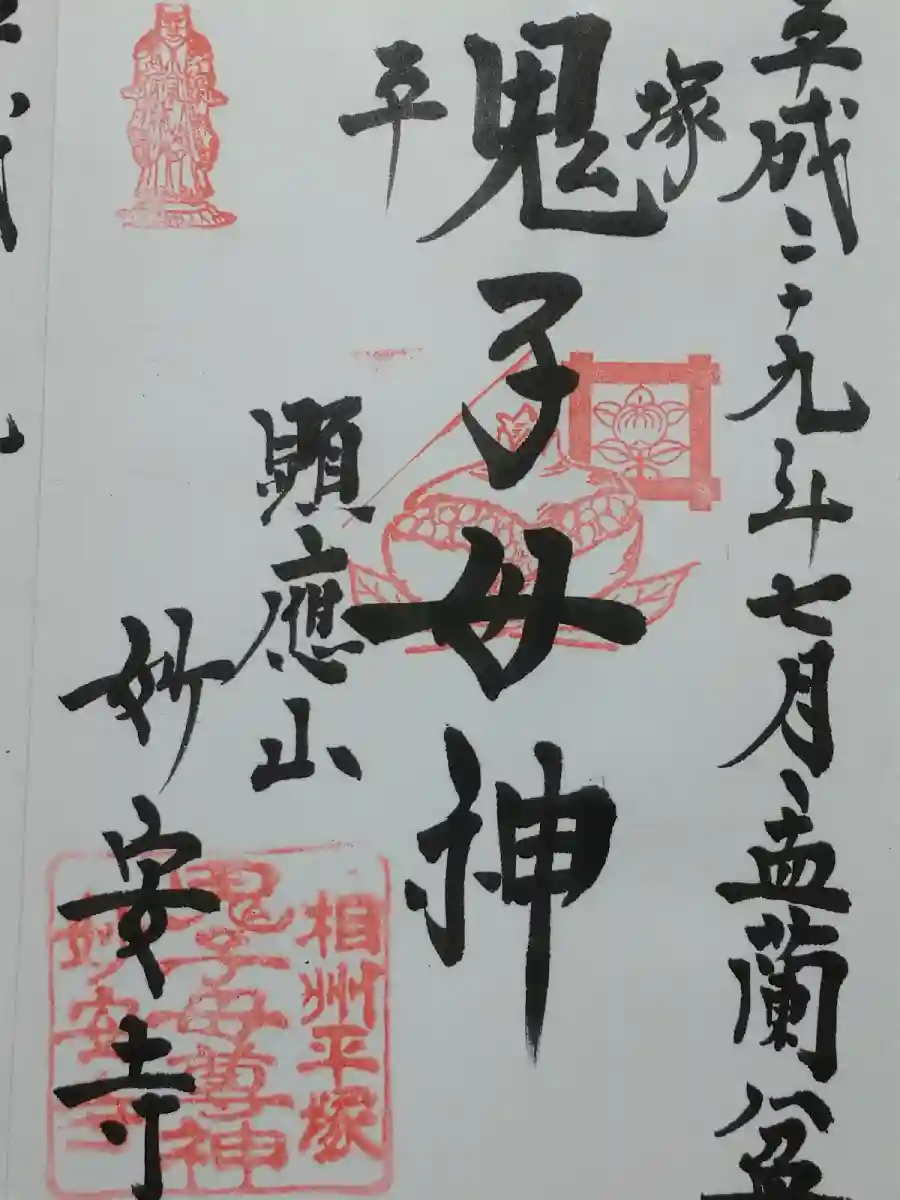 平成二十九年七月盂蘭盆
平塚
鬼子母神
顕應山
妙安寺
相州平塚
鬼子母尊神
妙安寺